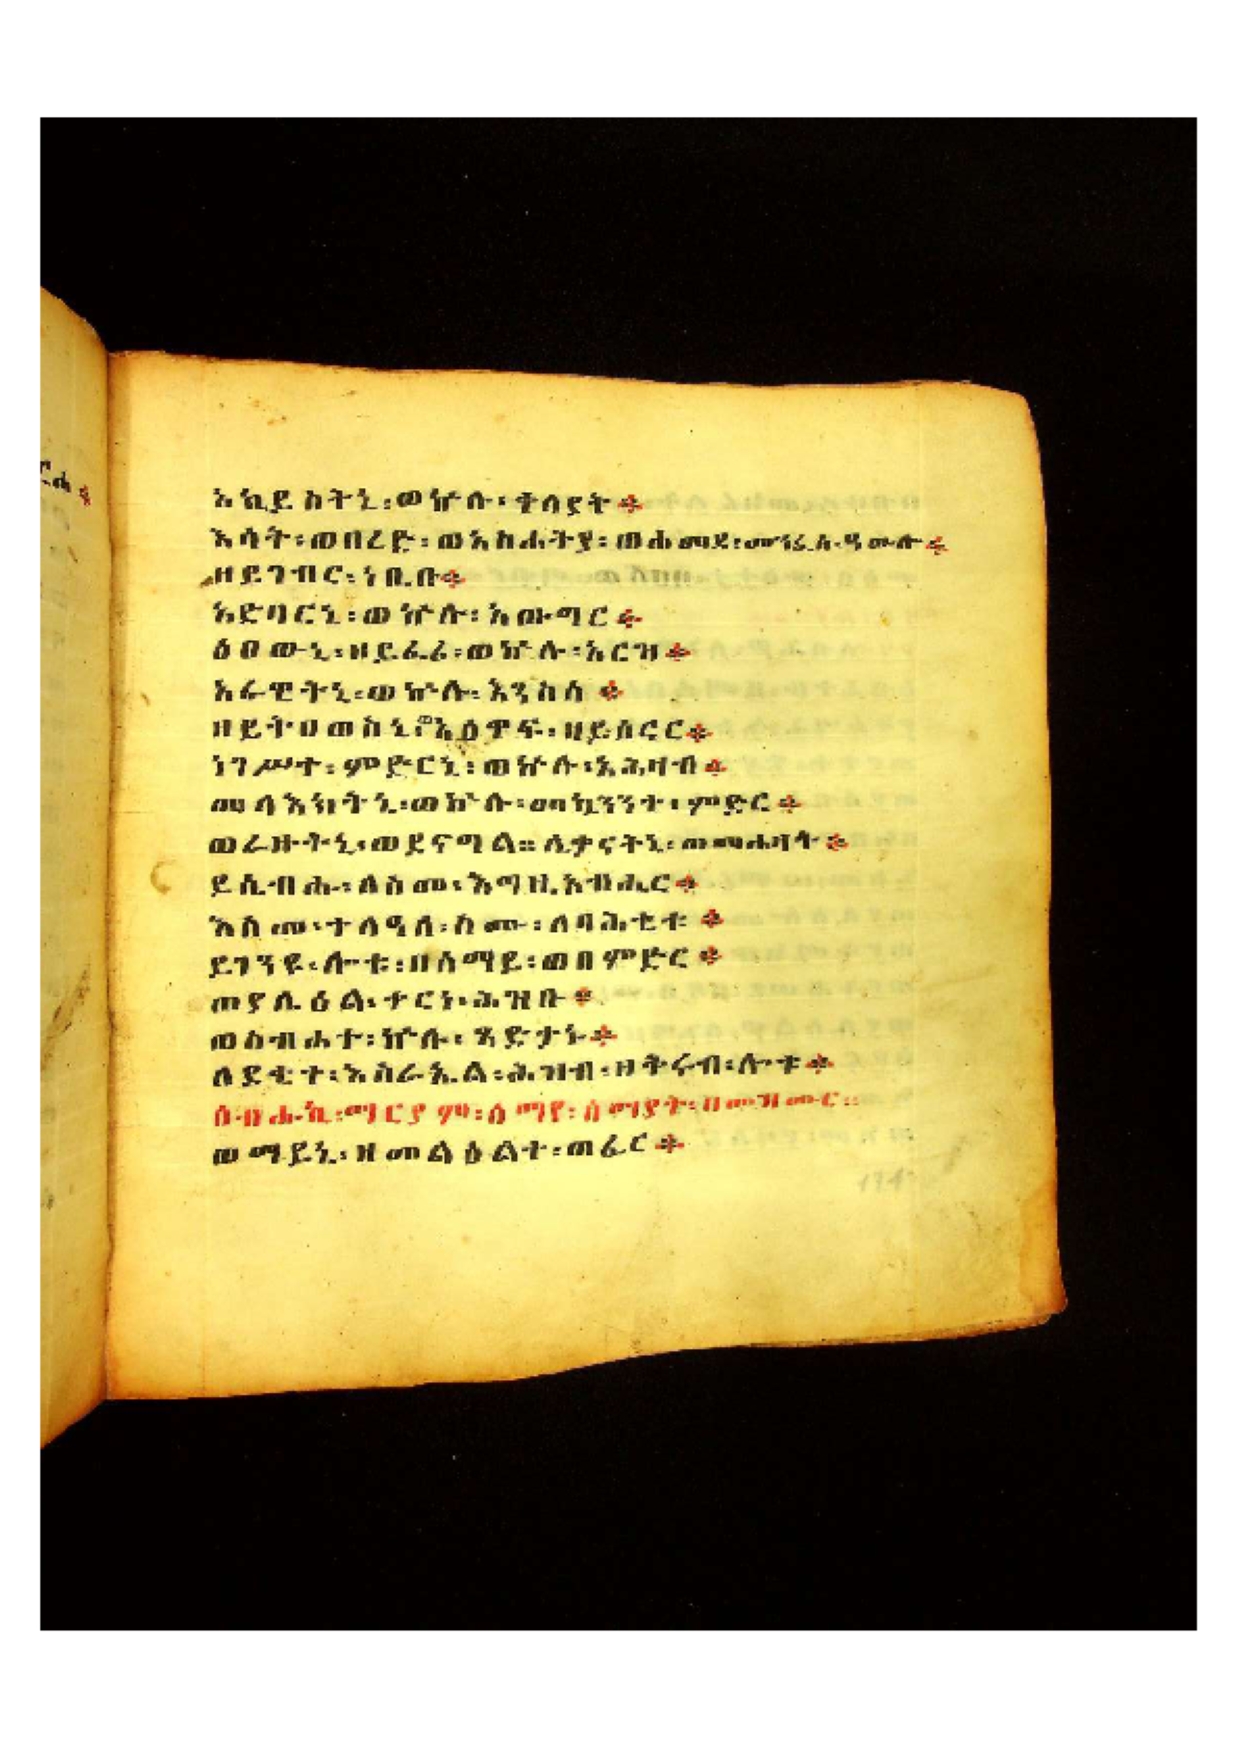 አኪይስትኒ፡ወኵሉ፡ቀላያት፨
እሳት፡ወበረድ፡ወአስሐትያ፡ወሐመዳ፡መንፈሰ፡ዓውሎ፨
ዘይገብር፡ነቢቦ፨
አድባርኒ፡ወኵሉ፡አውግር፨
ዕፀውኒ፡ዘይፈሪ፡ወኵሉ፡አርዝ፨
አራዊትኒ፡ወኵሉ፡እንስሳ፨
ዘይትሀወስኒ፡አዕዋፍ፡ዘይሰርር፨
ነገሥተ፡ምድርኒ፡ወኵሉ፡አሕዛብ፨
መላእክትኒ፡ወኵሉ፡መኳንንተ፡ምድር፨
ወራዙትኒ፡ወደናግል። ሊቃናትኒ፡ወመሐዛት፨
ይሴብሑ፡ለስመ፡እግዚአብሔር፨
እስመ፡ተለዓለ፡ስሙ፡ለባሕቲቱ፨
ይገንዩ፡ሎቱ፡በሰማይ፡ወበምድር፨
ወያሌዕል፡ቀርነ፡ሕዝቡ፨
ወስብሐተ፡ኵሉ፡ጻድቃኑ፨
ለደቂቀ፡እስራኤል፡ሕዝብ፡ዘቅሩብ፡ሎቱ፨
ሰብሕኪ፡ማርያም፡ሰማየ፡ሰማያት፡በመዝሙር።
ወማይኒ፡ዘመልዕልተ፡ጠፈር፨